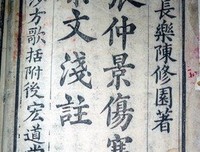 長樂陳修園著
張仲景傷寒
論文淺註
長沙方歌括附後 宏道堂